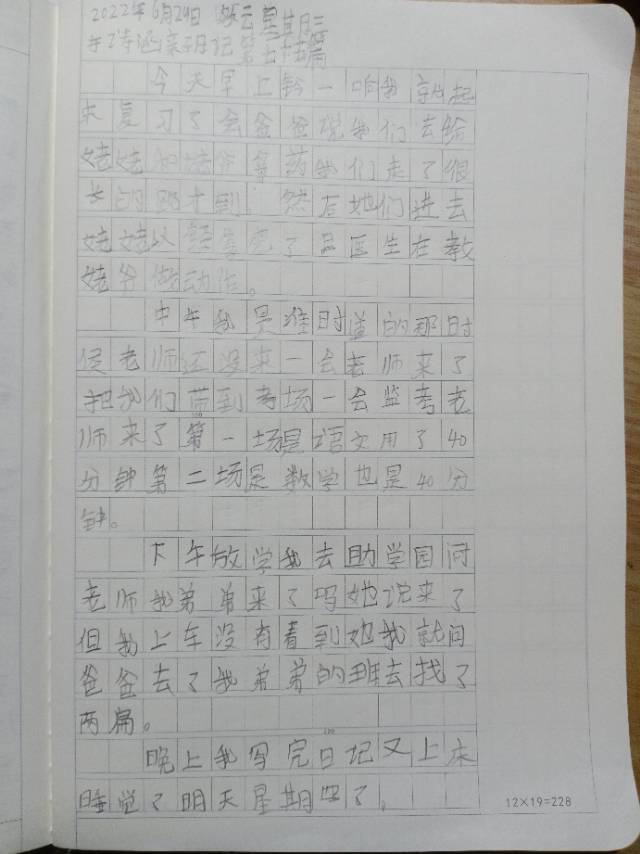 2022年6月29日 多云 星期三
日记 第七十五篇
今天早上铃一响我就起
来复习了会爸爸说我们去给
姥姥和姥爷拿药我们走了很
长的路才到。然后她们进去
姥姥以经看完了且医生在教
姥爷做动作。
中午我是准时溢的那时
侯老师还没来一会老师来了
把我们带到考场一会监考老
师来了第一场是语文用了40
分钟第二场是数学也是40分
钟。
下午放学我去助学园问
老师我弟弟来了吗她说来了
但我上车没有看到她我就问
爸爸去了我弟弟的班去找了
两扁。
晚上我写完日记又上床
睡觉了明天星期四了。
12×19=228